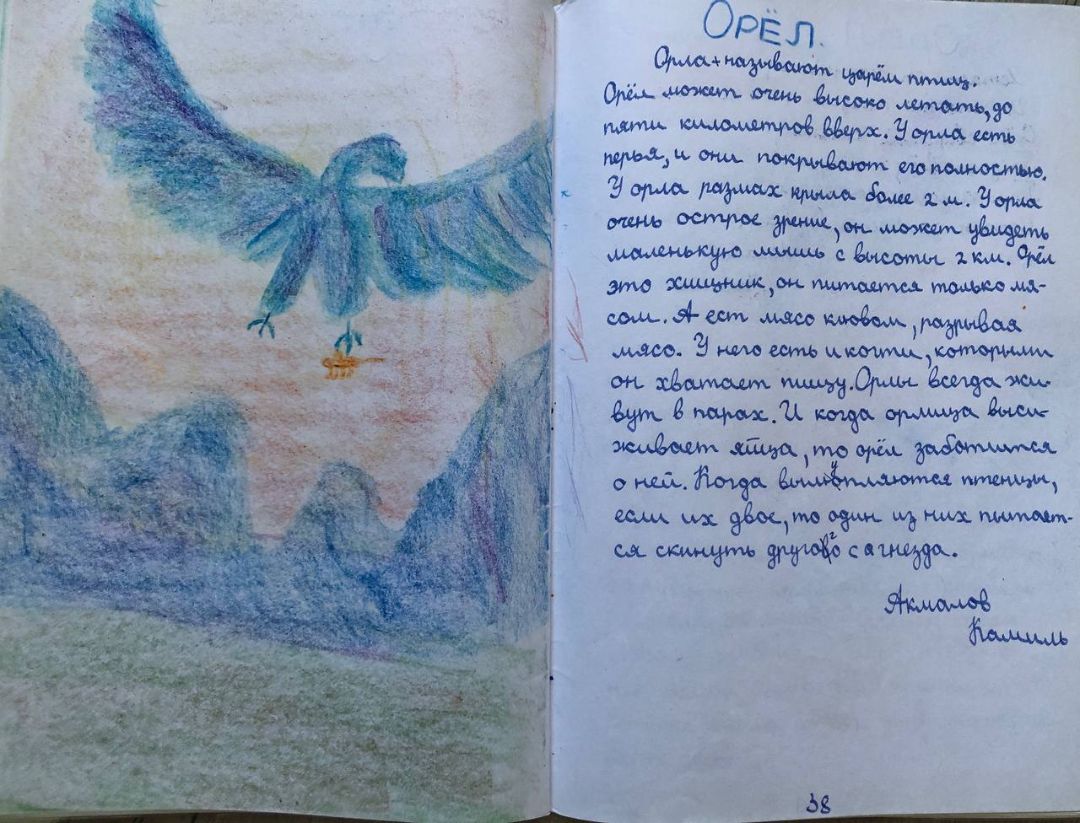 ОРЁЛ.
Орла+называют царём птиц.
Орёл может очень высоко летать, до
пяти километров вверх. У орла есть
перья, и они покрывают его полностью.
У орла размах крыла более 2 м. У орла
очень острое зрение, он может увидеть
маленькую мышь с высоты 2 км. Орёл
это хищник, он питается только мя-
сом. А ест мясо клювом, разрывая
мясо. У него есть и когти, которыми
он хватает пищу. Орлы всегда жи-
вут в парах. И когда орлица выси-
живает яйца, то орёл заботится
о ней. Когда вылупляются птенцы,
если их двое, то один из них пытает-
ся скинуть другого с гнезда.
Акмалов
Камиль
38